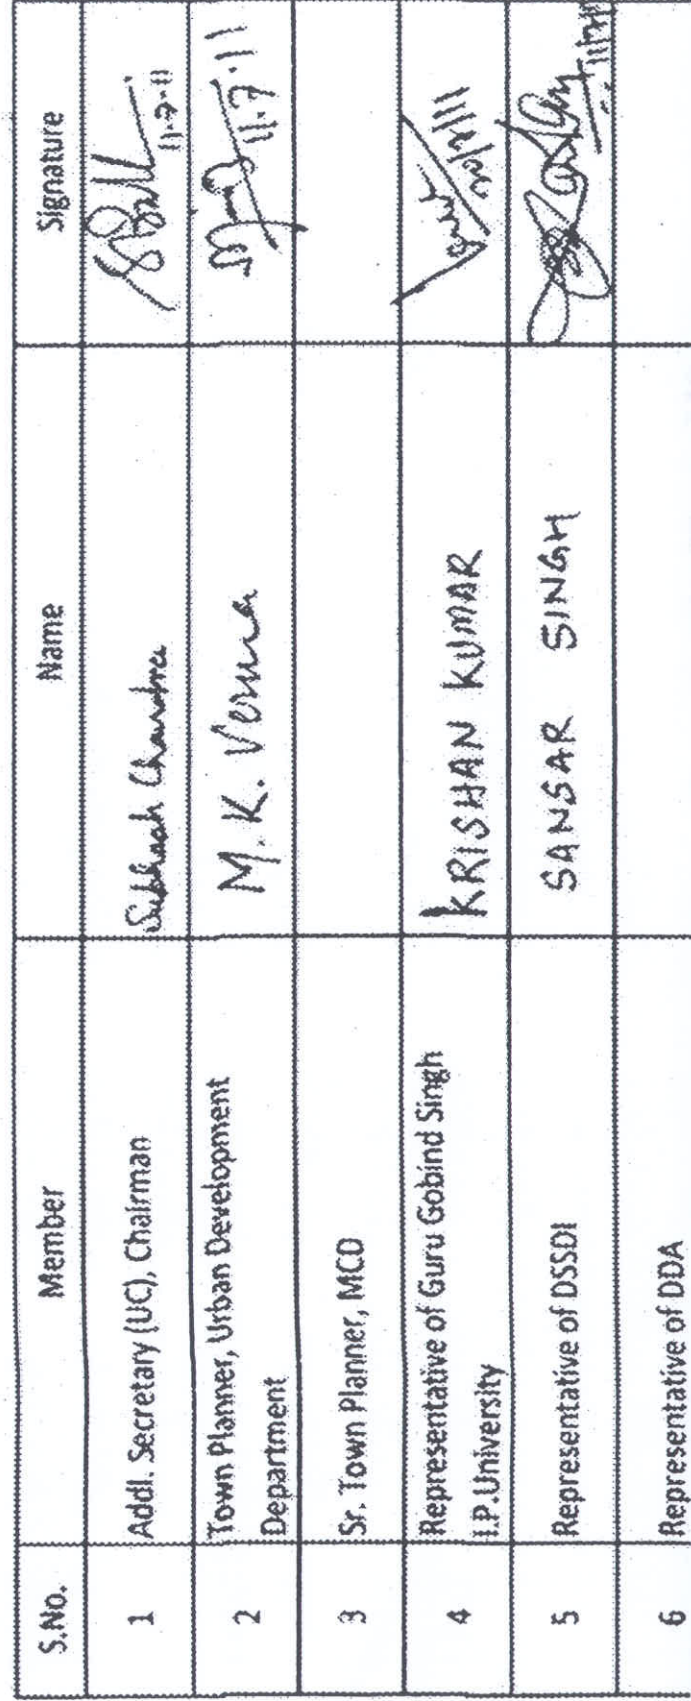 S.No. Member Name Signature
1 Addl. Secretary (UC), Chairman Subhash Chandra 11.7.11
2 Town Planner, Urban Development
Department M. K. Verma 11.7.11
3 Sr. Town Planner, MCD
4 Representative of Guru Gobind Singh
I.P.University KRISHAN KUMAR
5 Representative of DSSDI SANSAR SINGH
6 Representative of DDA